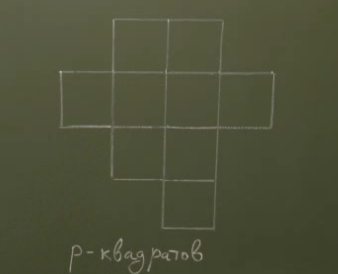 p-квадратов